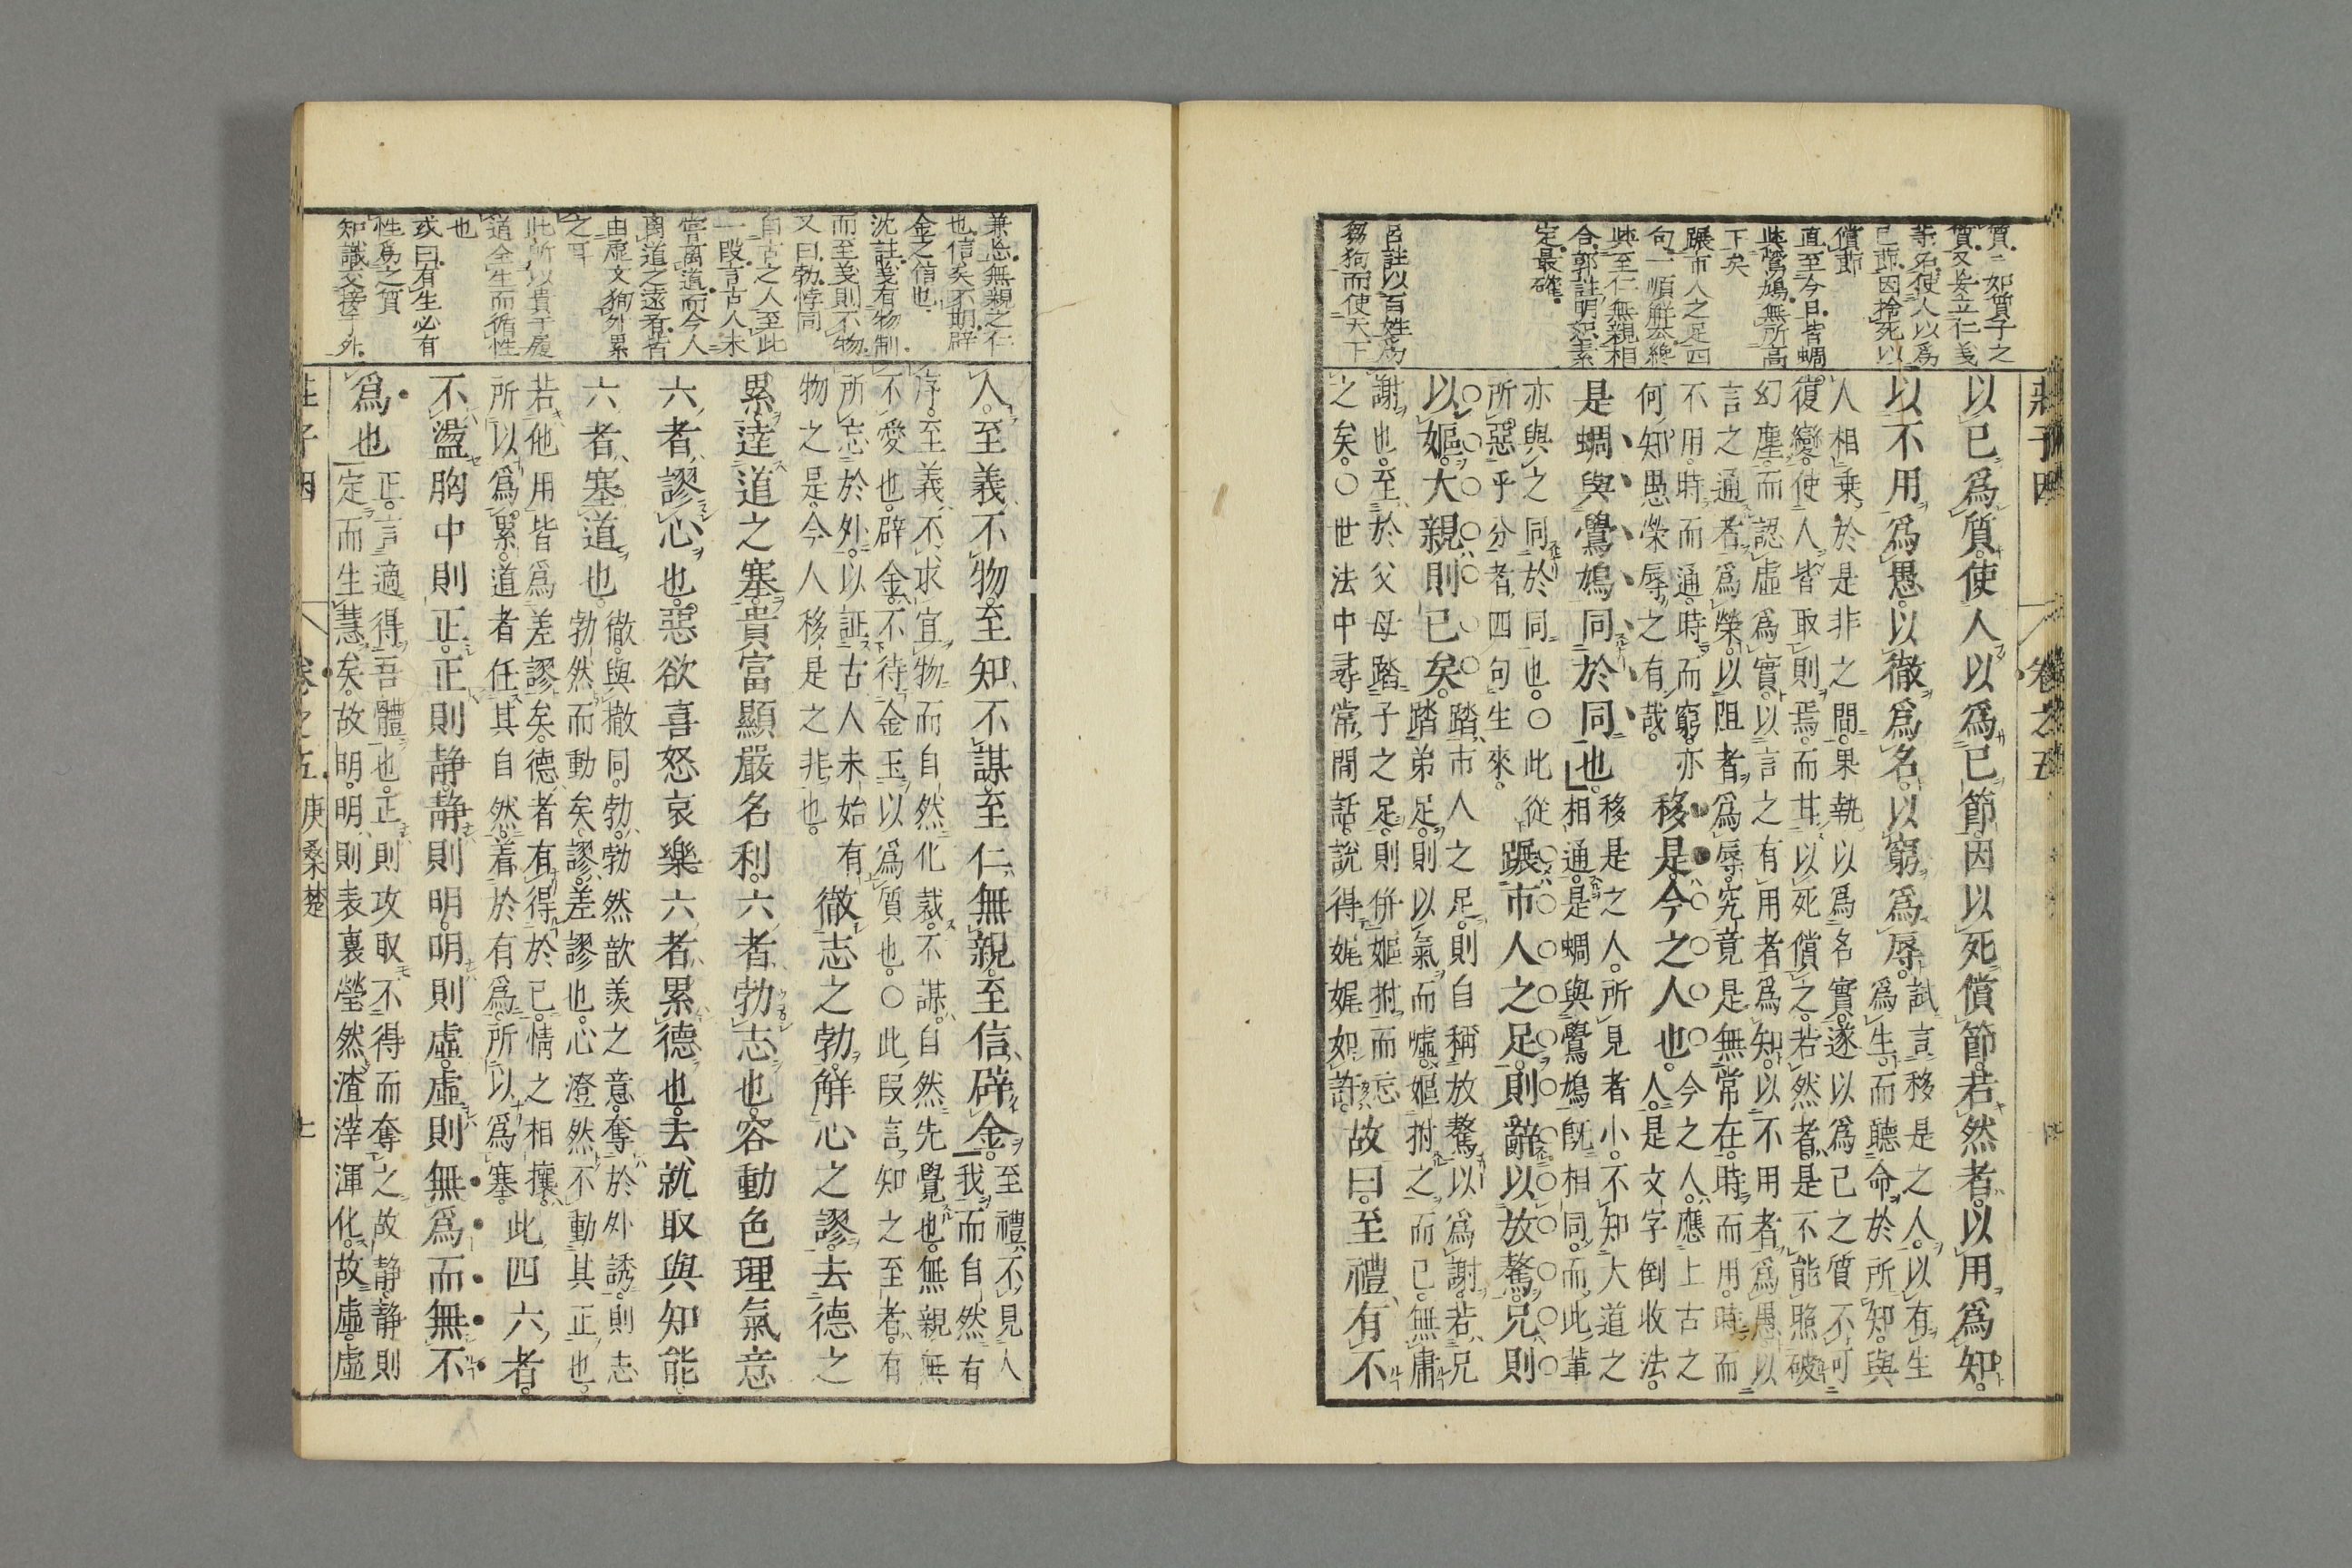 莊子因 卷之五
質如質子之
質又妄立仁義
等名使人以爲
己節因捨死以
償節
直至今日皆蜩
與鷽鳩無所高
下矣
蹍市人之足四
句一順觧去纔
與至仁無親相
合郭註明恕素
定最確
呂註以百姓爲
芻狗而使天下
以己爲質使人以爲己節因以死償節若然者以用爲知
以不用爲愚以徹爲名以窮爲辱
試言移是之人以有生
爲生而聽命於所知與
人相乗於是非之間果執以爲名實遂以爲己之質不可
復變使人皆取則焉而甘以死償之若然者是不能照破
幻塵而認虛爲實以言之有用者爲知以不用者爲愚以
言之通者爲榮以阻者爲辱究竟是無常在時而用時而
不用時而通時而窮亦
何知愚榮辱之有哉
移是今之人也
今之人應上古之
人是文字倒收法
是蜩與鷽鳩同於同也
移是之人所見者小不知大道之
相通是蜩與鷽鳩旣相同而此輩
亦與之同於同也〇此從
所惡乎分者四句生來
蹍市人之足則辭以放驁兄則
以嫗大親則已矣
踏市人之足則自稱放驁以爲謝若兄
踏弟足則以氣而噓嫗拊之而已無庸
謝也至於父母踏子之足則併嫗拊而忘
之矣〇世法中尋常閒話說得娓娓如許
故曰至禮有不
兼忘無親之仁
也信矣不期辟
金之信也
沈註義有物制
而至義則不物
又曰勃悖同
自古之人至此
一段言古人未
嘗離道而今人
離道之遠者皆
由虛文狥外累
之耳
此所以貴于履
道全生而循性
也
或曰有生必有
性爲之質
知識交接于外
人至義不物至知不謀至仁無親至信辟金
至禮不見人
我而自然有
序至義不求宜物而自然化裁不謀自然先覺也無親無
不愛也辟金不待金玉以爲質也〇此段言知之至者有
所忘於外以証古人未始有
物之是今人移是之非也
徹志之勃解心之謬去德之
累達道之塞貴富顯嚴名利六者勃志也容動色理氣意
六者謬心也惡欲喜怒哀樂六者累德也去就取與知能
六者塞道也
徹與撤同勃勃然歆羨之意奪於外誘則志
勃然而動矣謬差謬也心澄然不動其正也
若他用皆爲差謬矣德者有得於己情之相攘
所以爲累道者任其自然着於有爲所以爲塞
此四六者
不盪胸中則正正則静静則明明則虛虛則無爲而無不
爲也
正言適得吾體也正則攻取不得而奪之故静静則
定而生慧矣故明明則表裏瑩然渣滓渾化故虛虛
莊子因 卷之五 庚桑楚